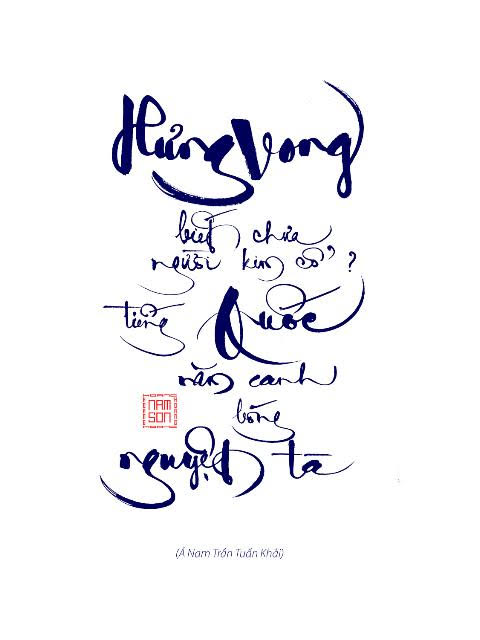 Hưng Vong
biết chưa
người kim cổ ?
tiếng Quốc
năm canh
bóng
nguyệt tà
NAM
SON
(Á Nam Trần Tuấn Khải)